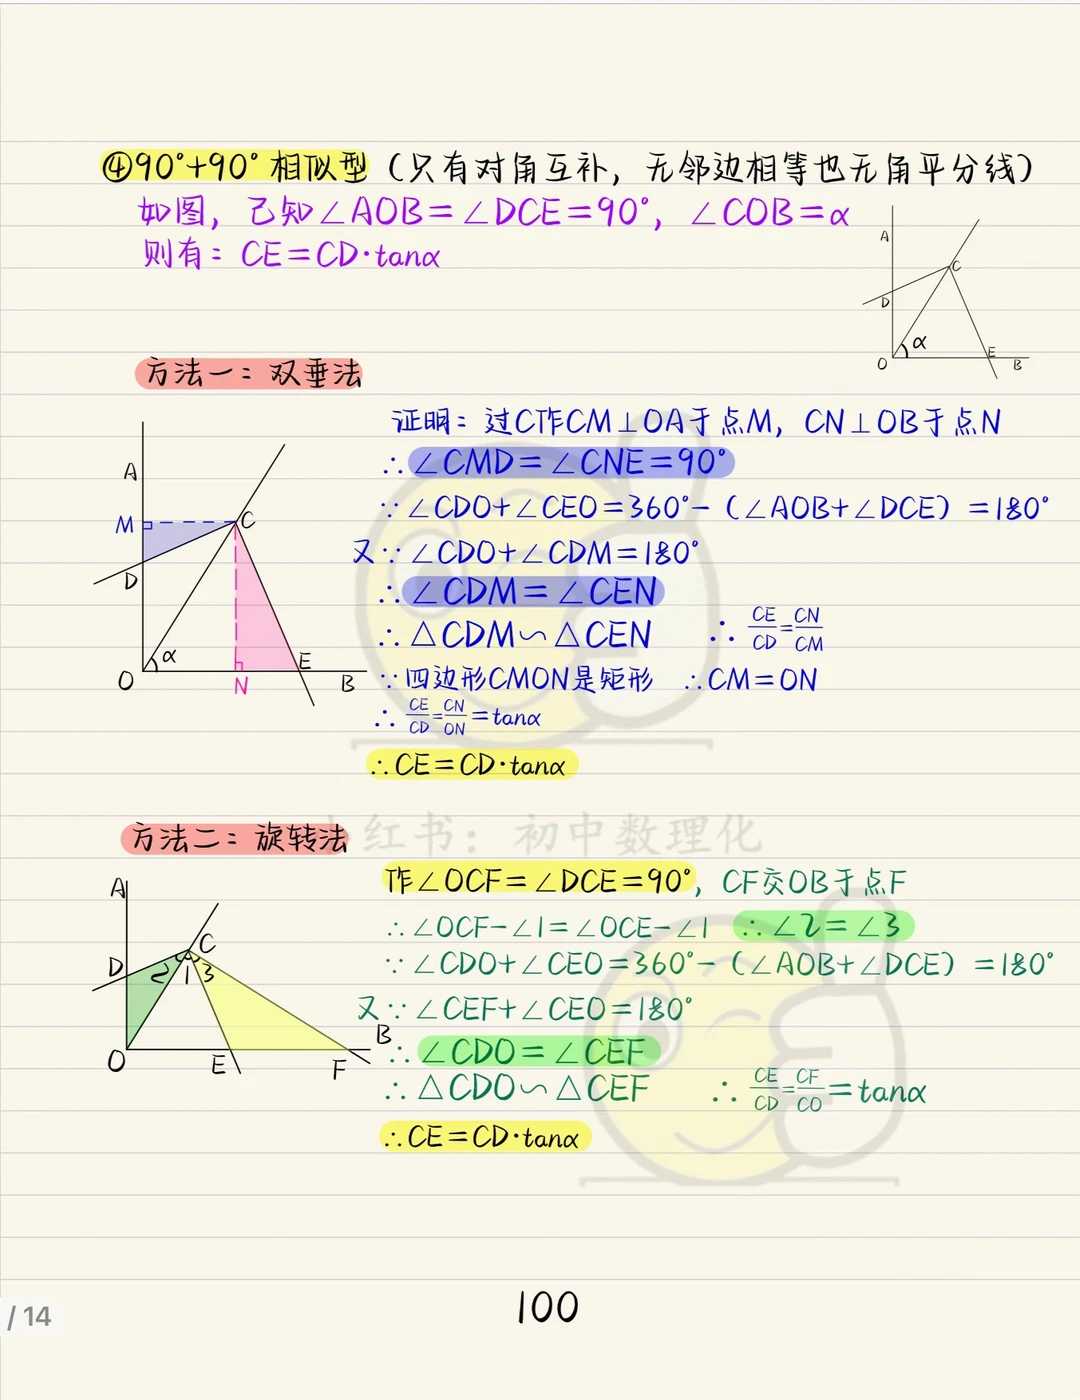 ④90°+90°相似型（只有对角互补，无邻边相等也无角平分线）
如图，已知∠AOB=∠DCE=90°，∠COB=α
则有：CE=CD·tanα
A
C
D
α
O
E
B
方法一：双垂法
证明：过C作CM⊥OA于点M，CN⊥OB于点N
∴∠CMD=∠CNE=90°
∵∠CDO+∠CEO=360°-（∠AOB+∠DCE）=180°
又∵∠CDO+∠CDM=180°
∴∠CDM=∠CEN
∴△CDM∽△CEN ∴CE/CD=CN/CM
∵四边形CMON是矩形 ∴CM=ON
∴CE/CD=CN/ON=tanα
∴CE=CD·tanα
A
M
C
D
α
O
N
E
B
小红书：初中数理化
方法二：旋转法
作∠OCF=∠DCE=90°，CF交OB于点F
∴∠OCF-∠1=∠OCE-∠1 ∴∠2=∠3
∵∠CDO+∠CEO=360°-（∠AOB+∠DCE）=180°
又∵∠CEF+∠CEO=180°
∴∠CDO=∠CEF
∴△CDO∽△CEF ∴CE/CD=CF/CO=tanα
∴CE=CD·tanα
A
C
D
2 1 3
B
O
E
F
100
/ 14